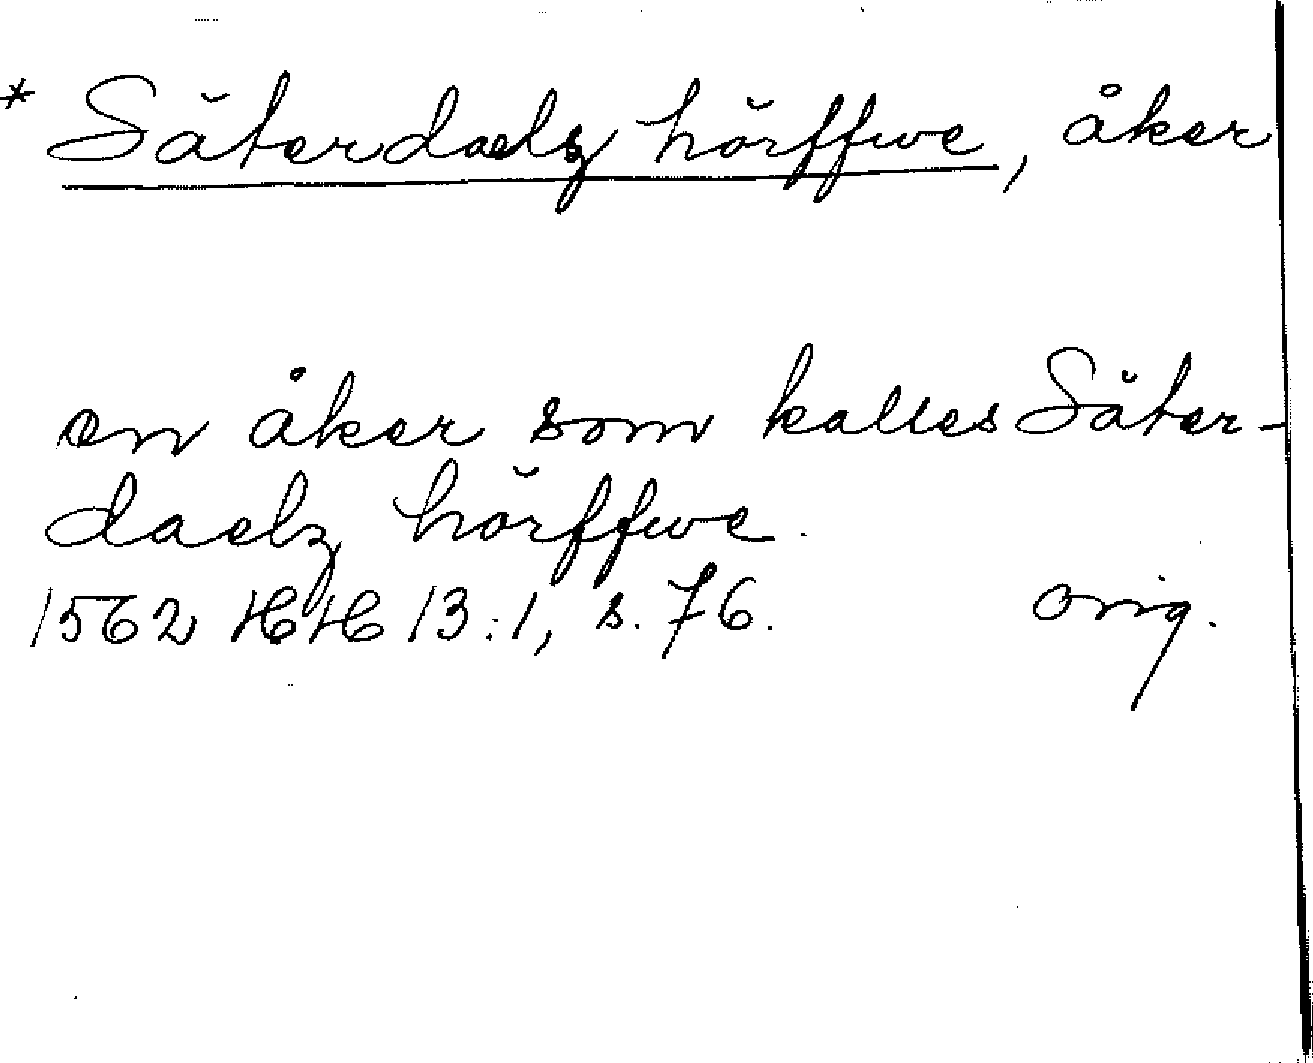 * Säterdaelz hörffwe, åker
en åker som kalles Säter-
daelz hörffwe.
1562 HH 13:1, s. 76. orig.